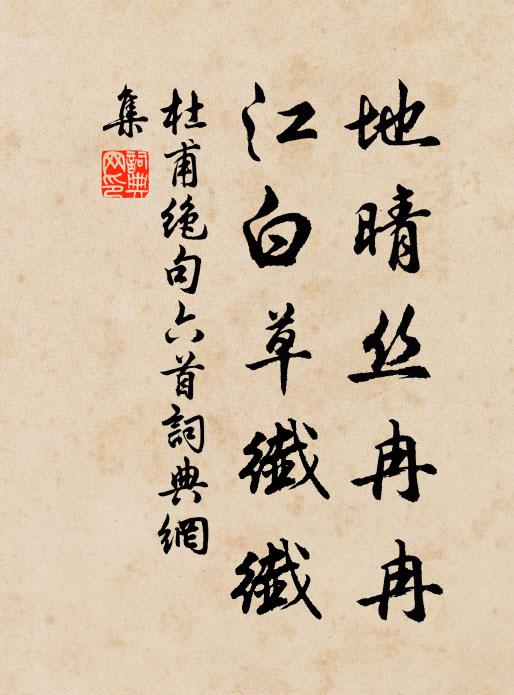 地晴丝冉冉
江白草纖纖
杜甫绝句六首詞典網
集
詞典
网印